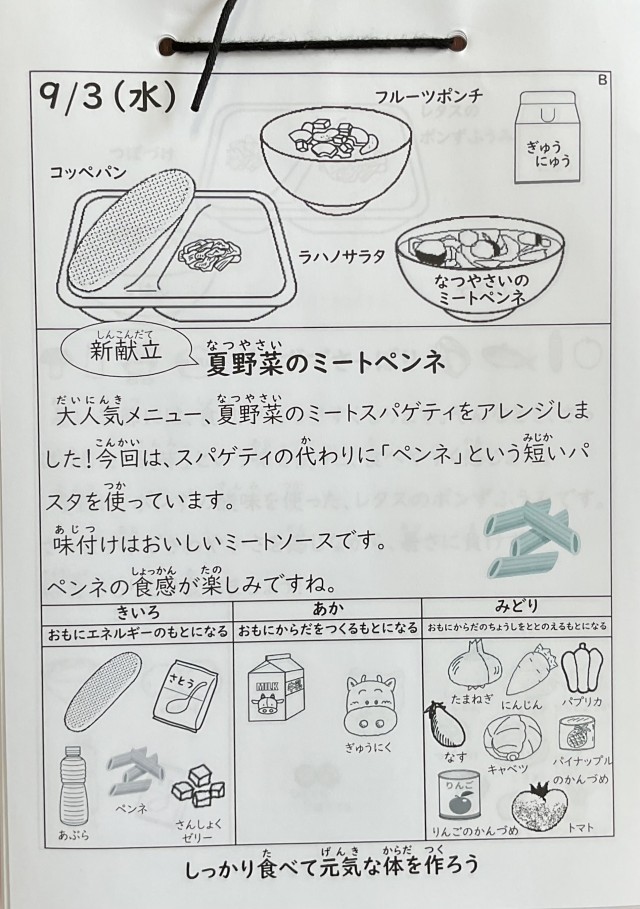 B
9/3(水)
フルーツポンチ
ぎゅう
にゅう
コッペパン
ラハノサラタ
なつやさいの
ミートペンネ
しんこんだて
新献立
なつやさい
夏野菜のミートペンネ
だいにんき なつやさい
大人気メニュー、夏野菜のミートスパゲティをアレンジしま
こんかい か みじか
した!今回は、スパゲティの代わりに「ペンネ」という短いパ
つか
スタを使っています。
あじつ
味付けはおいしいミートソースです。
しょっかん たの
ペンネの食感が楽しみですね。
きいろ
おもにエネルギーのもとになる
さとう
あぶら
ペンネ
さんしょく
ゼリー
あか
おもにからだをつくるもとになる
MILK
ぎゅうにく
みどり
おもにからだのちょうしをととのえるもとになる
たまねぎ
にんじん
パプリカ
なす
キャベツ
パイナップル
のかんづめ
りんご
りんごのかんづめ
トマト
た げんき からだ つく
しっかり食べて元気な体を作ろう